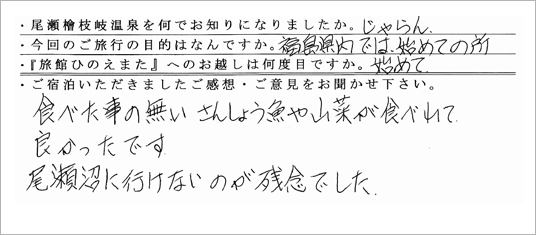 ・尾瀬檜枝岐温泉を何でお知りになりましたか。じゃらん.
・今回のご旅行の目的はなんですか。福島県内では、始めての所
・『旅館ひのえまた』へのお越しは何度目ですか。始めて.
・ご宿泊いただきましたご感想・ご意見をお聞かせ下さい。
食べた事の無い さんしょう魚や山菜が食べれて
良かったです
尾瀬沼に行けないのが残念でした.